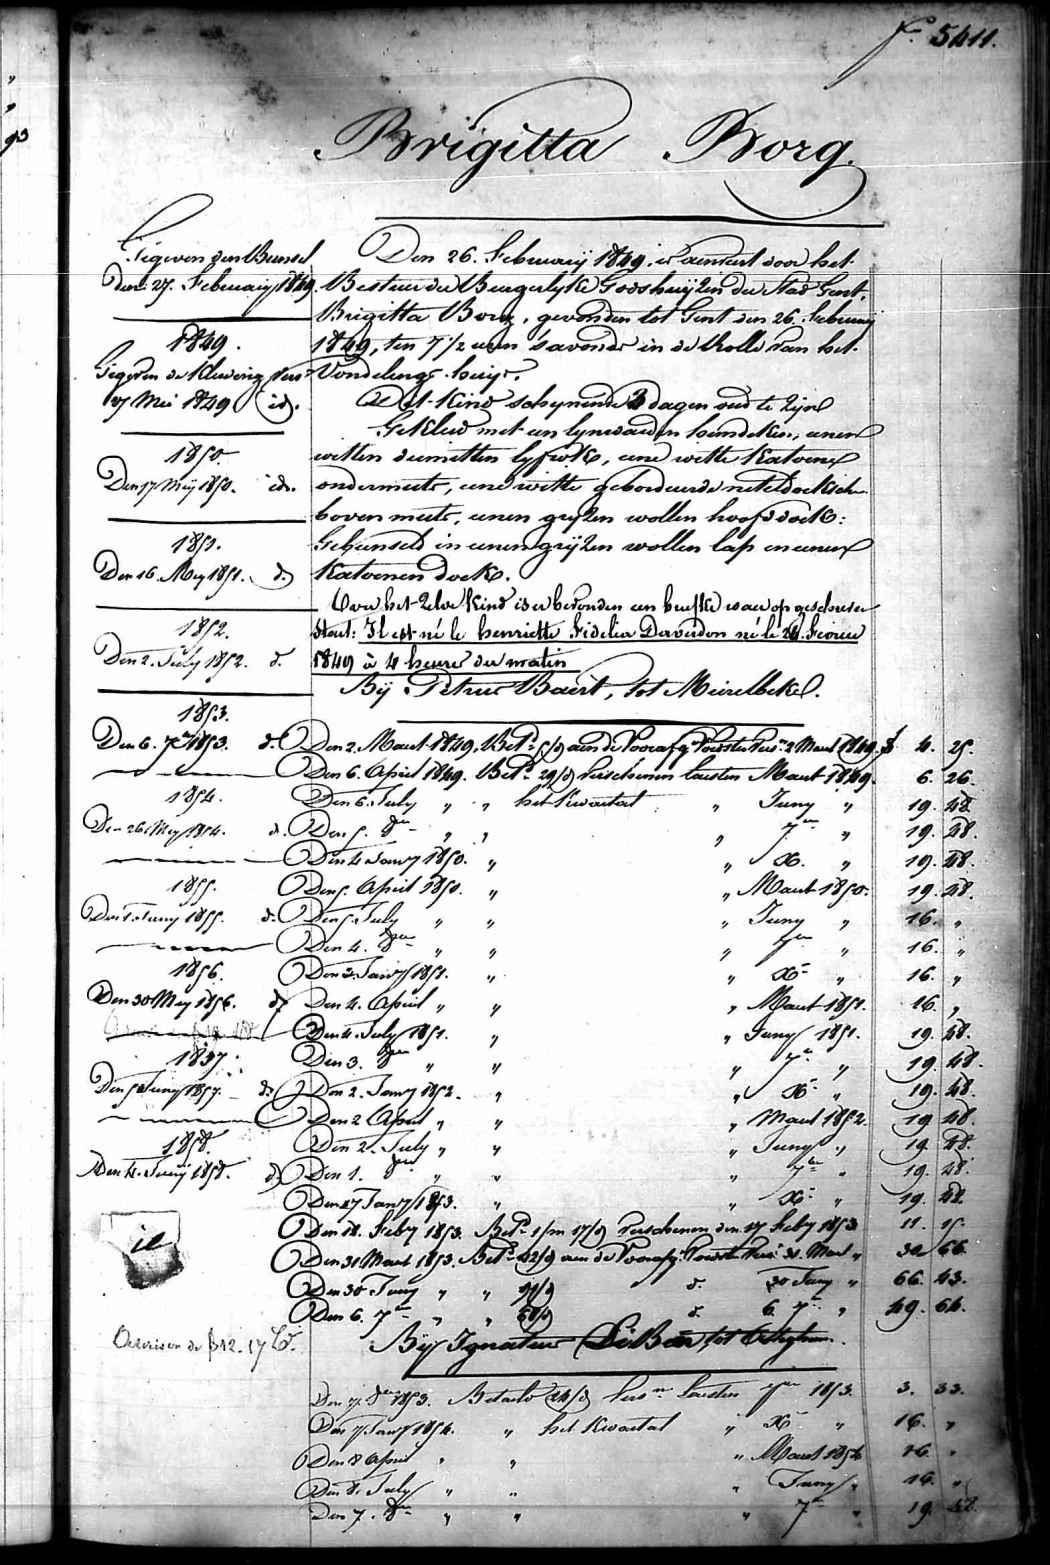 5411.
Brigitta Borg.
Gegeven den Bunsel
Den 27. February 1849.
1849.
Gegeven de Kleeding
Mei 1849 id.
1850.
Den 17 Meij 1850. id.
1851.
Den 16. Mey 1851. d.
1852.
Den 2. July 1852. d.
1853.
Den 6. 7er 1853. d.
1854.
Den 26 Mey 1854. d.
1855.
Den 1. Juny 1855. d.
1856.
Den 30 Mey 1856. d.
1857.
Den 5 Juny 1857. d.
1858.
Den 4. Junij 1858. d.
Den 26. February 1849. is aenveird door het
Bestier der Burgerlyke Godshuyzen der Stad Gent,
Brigitta Borg, gevonden tot Gent den 26. February
1849, ten 7 1/2 uren s'avonds in de Rolle van het
Vondelings-huys.
Dit Kind schynende 3 dagen oud te zyn
Gekleed met een lynwaeden hemdeken, eenen
witten demitten lyfrok, eene witte Katoene
ondermuts, eene witte geborduerde neteldoeksche
boven muts, eenen gryzen wollen hoofddoek:
Gebunseld in eenen gryzen wollen lap en eenen
Katoenen doek.
Over het zelve Kind is er bevonden een briefke waer op geschreven
staet: Il est né le henriette Fidelia Derverdon né le 24 Fevrier
1849 à 4 heures du matin
Bij Petrus Baert, tot Meirelbeke.
Den 2. Maert 1849. Bet. aen de Voorafg. Voedster 2 Maert 1849. 4. 25.
Den 6. April 1849. Bet. 29/d verschenen laesten Maert 1849. 6. 26.
Den 6. July " " het Kwartael " Juny " 19. 48.
Den 5. 8er " " " 7er " 19. 48.
Den 4 Janry 1850. " " X. " 19. 48.
Den 5. April 1850. " " Maert 1850. 19. 48.
Den 5. July " " " Juny " 16. "
Den 4. 8er " " " 7er " 16. "
Den 3. Janry 1851. " " Xr " 16. "
Den 4. April " " " Maert 1851. 16. "
Den 4. July 1851. " " Juny 1851. 19. 48.
Den 3. 8er " " " 7er " 19. 48.
Den 2. Janry 1852. " " Xr " 19. 48.
Den 2 April " " " Maert 1852. 19. 48.
Den 2. July " " " Juny " 19. 48.
Den 1. 8er " " " 7er " 19. 48.
Den 27 Janry 1853. " Xr " 19. 48.
Den 18. Feby 1853. Bet. 1/m 17/d verschenen den 17 Feby 1853 11. 15.
Den 31 Maert 1853. Bet. 42/d aen de Voorafg. Voedster 31. Maert " 32 66.
Den 30 Juny " " 91/d d. 30 Juny " 66. 43.
Den 6. 7er " " 68/d d. 6. 7er " 49. 64.
Bij Ignatius De Baer, tot
Den 7. 8er 1853. Betaeld 24/d laesten 7er 1853. 3. 33.
Den 7. Janry 1854. " het Kwartael " Xr " 16. "
Den 8 April " " " Maert 1854 16. "
Den 8. July " " " Juny " 16. "
Den 7. 8er " " " 7er " 19. 48.